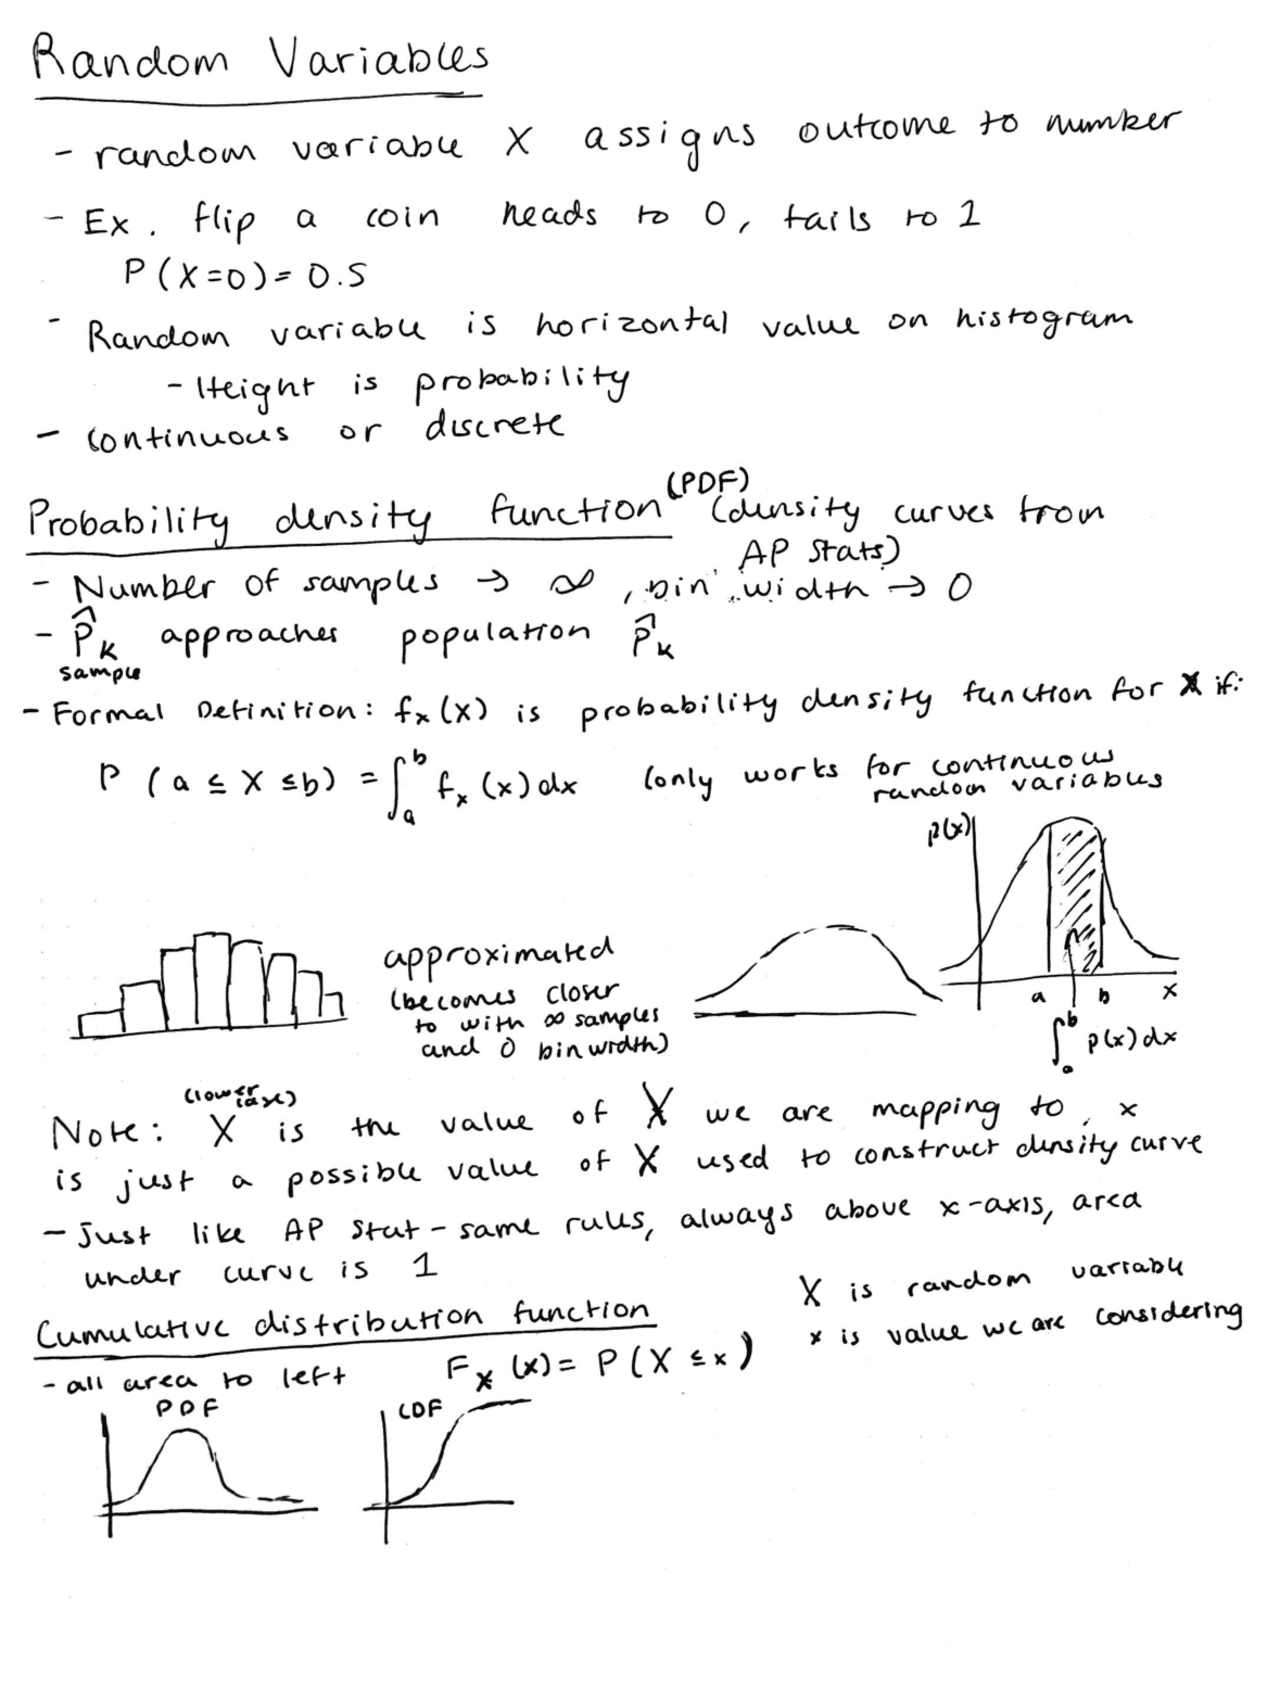 Random Variables
- random variable X assigns outcome to number
- Ex. flip a coin heads to 0, tails to 1
P(X=0)=0.5
- Random variable is horizontal value on histogram
- Height is probability
- continuous or discrete
Probability density function (PDF) (density curves from
AP Stats)
- Number of samples → ∞, bin width → 0
- p̂ₖ approaches population p̂ₖ
sample
- Formal Definition: fₓ(x) is probability density function for X if:
P(a ≤ X ≤ b) = ∫ₐᵇ fₓ(x)dx (only works for continuous
random variables
p(x)
approximated
(becomes closer
to with ∞ samples
and 0 bin width)
a b x
∫ₐᵇ p(x)dx
(lower case)
Note: X is the value of X we are mapping to, x
is just a possible value of X used to construct density curve
- Just like AP Stat - same rules, always above x-axis, area
under curve is 1
X is random variable
x is value we are considering
Cumulative distribution function
- all area to left Fₓ(x) = P(X ≤ x)
PDF CDF